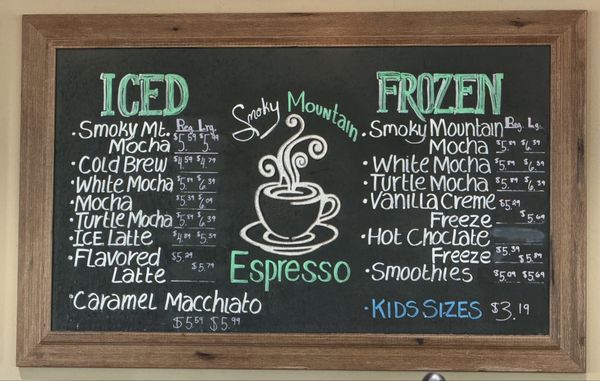 ICED
Reg. Lrg.
• Smoky Mt.
Mocha $5.59 $5.99
• Cold Brew $4.59 $4.79
• White Mocha $5.89 $6.39
• Mocha $5.39 $6.09
• Turtle Mocha $5.89 $6.39
• ICE Latte $4.89 $5.39
• Flavored $5.29
Latte $5.79
• Caramel Macchiato
$5.59 $5.99
Smoky Mountain
Espresso
FROZEN
Reg. Lg.
• Smoky Mountain
Mocha $5.89 $6.39
• White Mocha $5.89 $6.39
• Turtle Mocha $5.89 $6.39
• Vanilla Creme $5.29
Freeze $5.69
• Hot Choclate
Freeze $5.39 $5.89
• Smoothies $5.09 $5.69
• KIDS SIZES $3.19